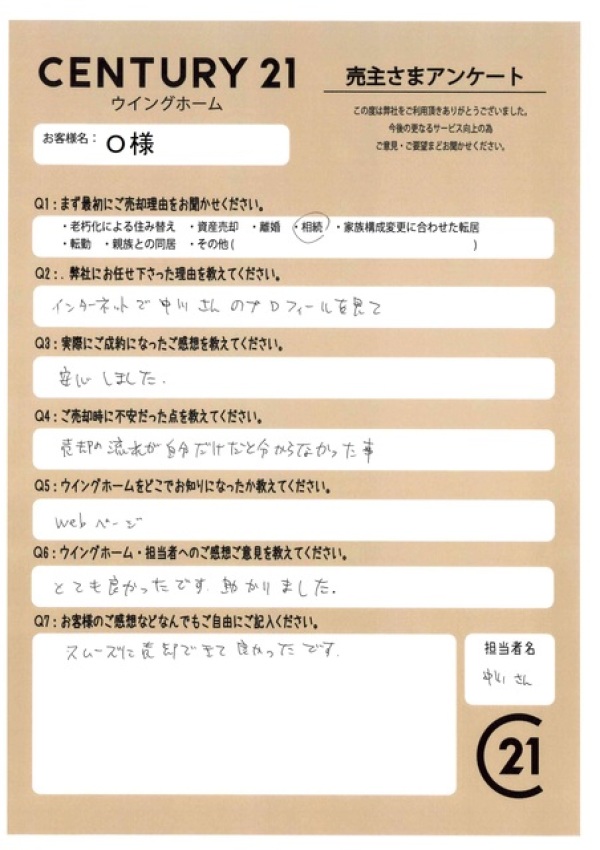 CENTURY 21
ウイングホーム
売主さまアンケート
この度は弊社をご利用頂きありがとうございました。
今後の更なるサービス向上の為
ご意見・ご要望までお聞かせください。
お客様名： O様
Q1：まず最初にご売却理由をお聞かせください。
・老朽化による住み替え ・資産売却 ・離婚 ・相続 ・家族構成変更に合わせた転居
・転勤 ・親族との同居 ・その他( )
Q2：. 弊社にお任せ下さった理由を教えてください。
インターネットで中川さんのプロフィールを見て
Q3：実際にご成約になったご感想を教えてください。
安心しました.
Q4：ご売却時に不安だった点を教えてください。
売却の流れが自分だけだと分からなかった事
Q5：ウイングホームをどこでお知りになったか教えてください。
Webページ
Q6：ウイングホーム・担当者へのご感想ご意見を教えてください。
とても良かったです. 助かりました.
Q7：お客様のご感想などなんでもご自由にご記入ください。
スムーズに売却できて良かったです.
担当者名
中川さん
C21